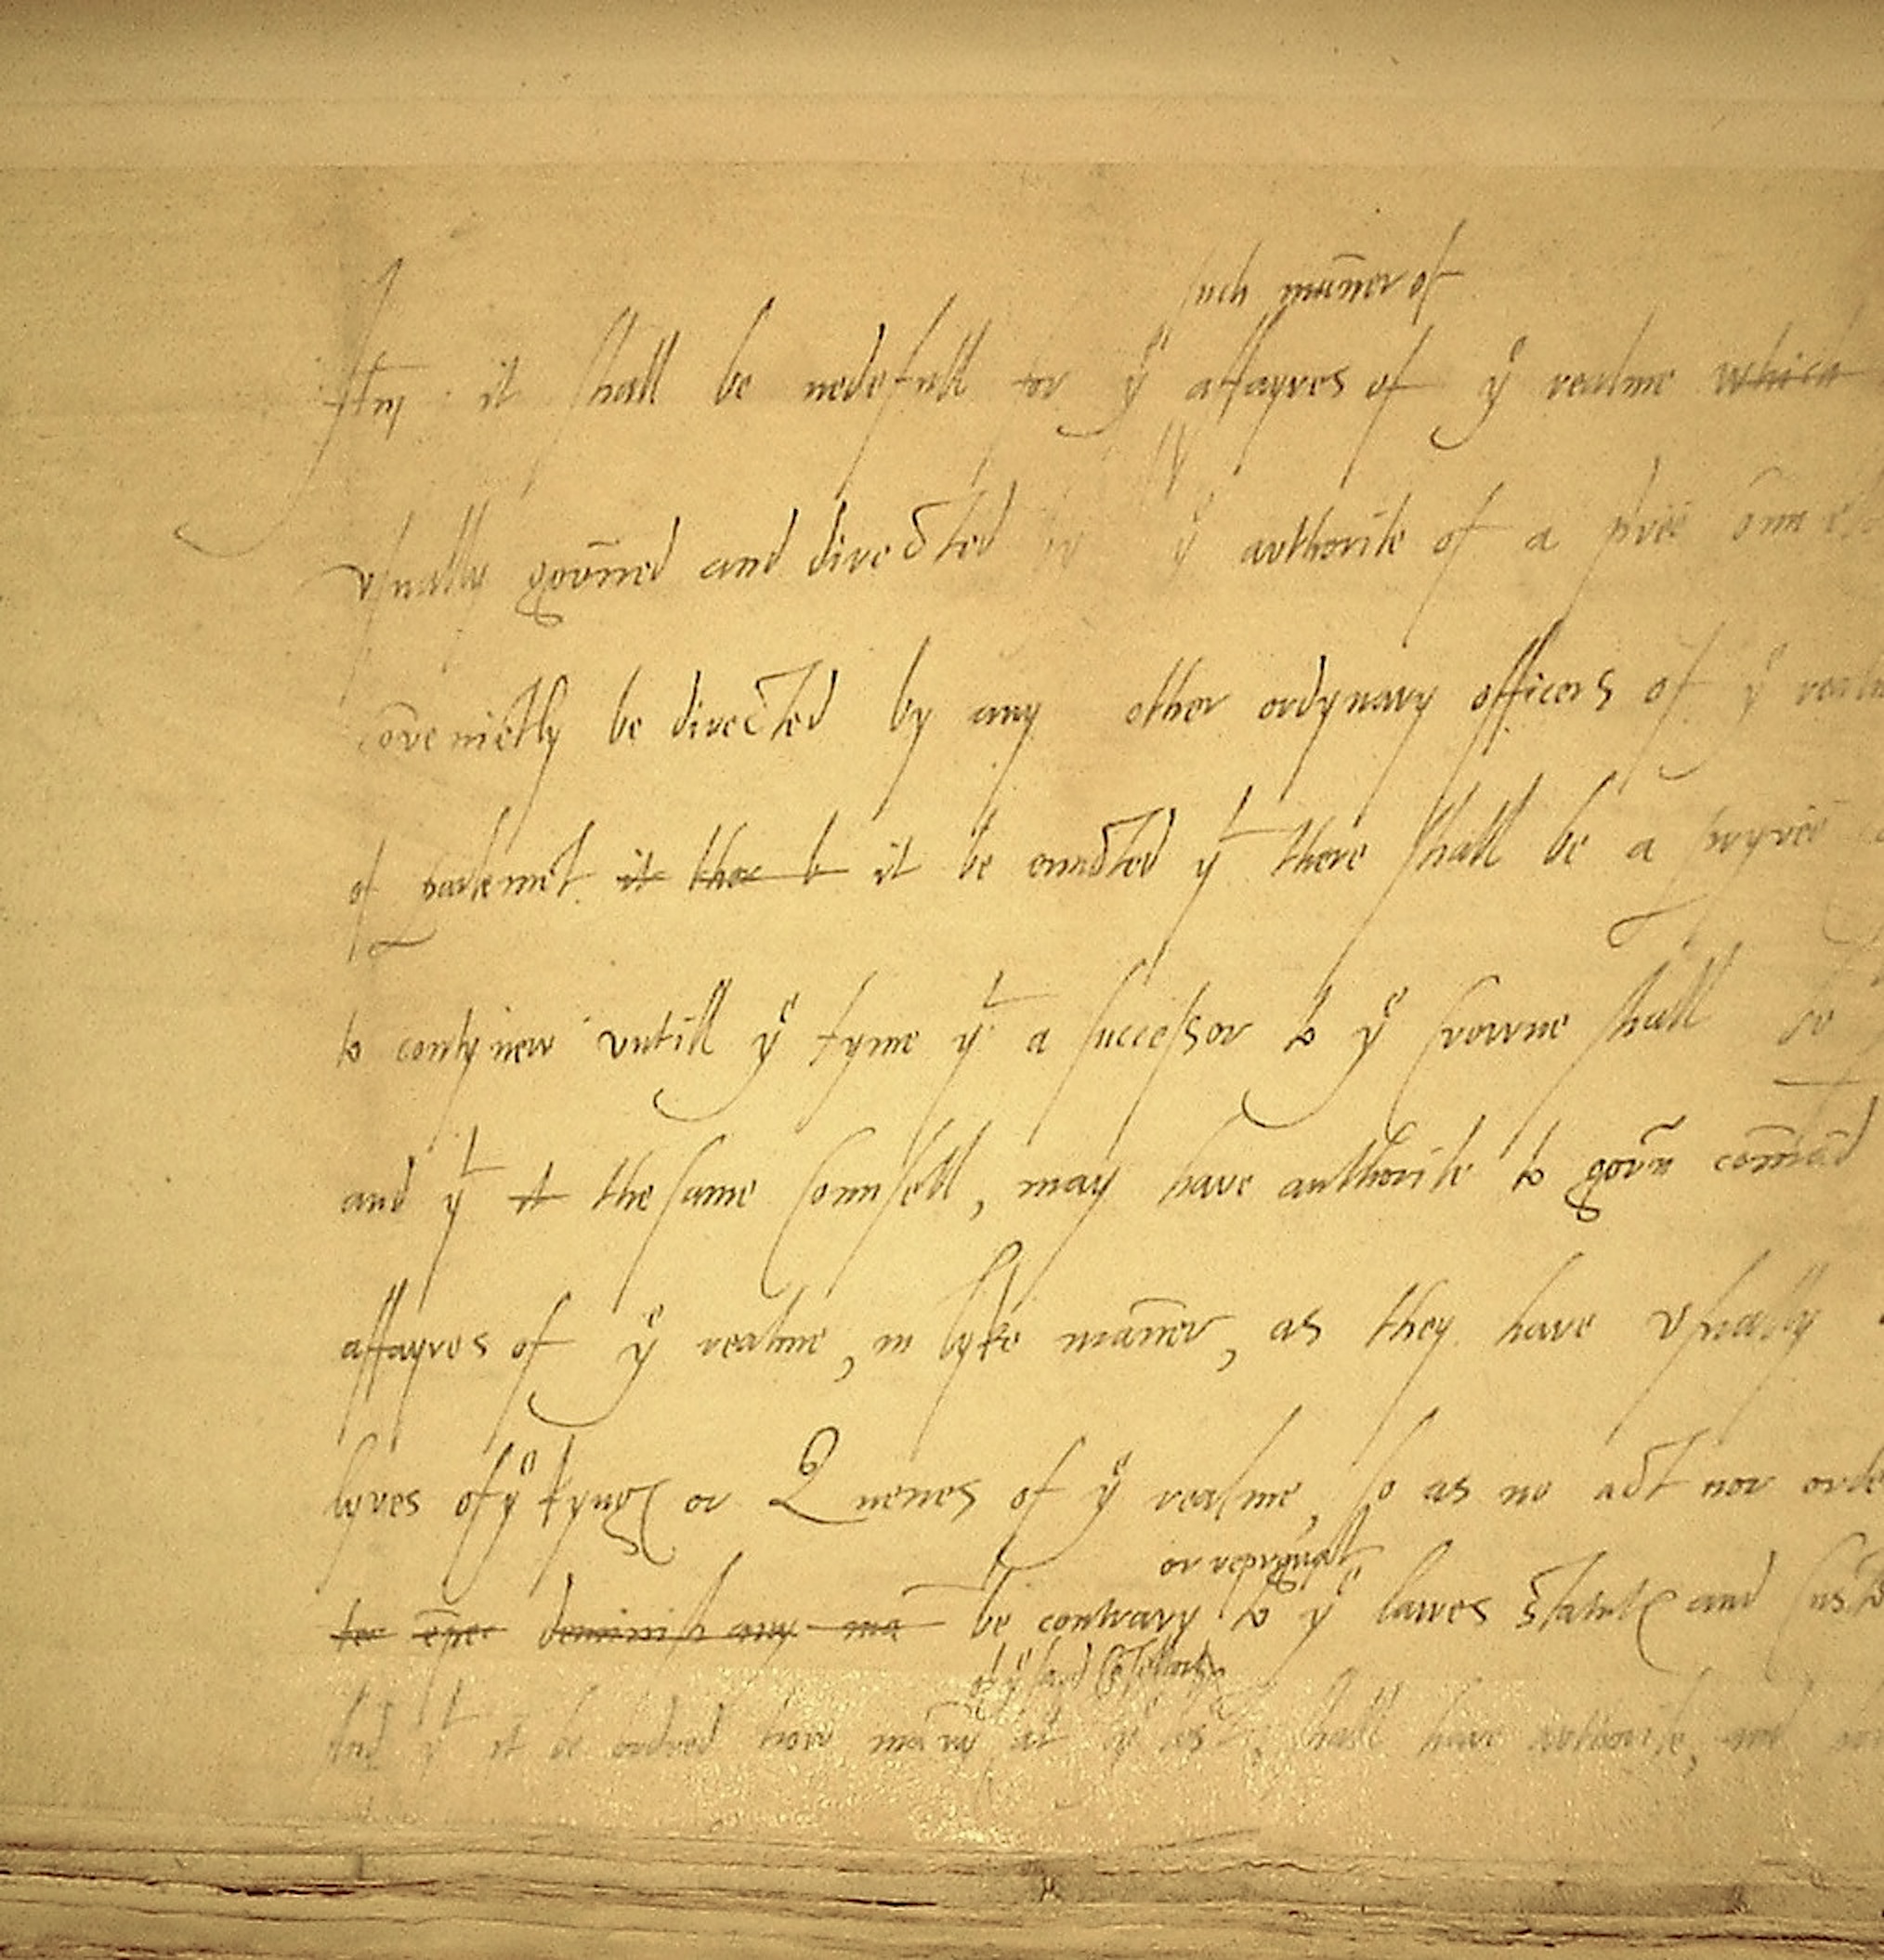 such man̄er of
Itm̄ it shall be nedefull for yᵉ affayres of yᵉ realme which
vsually gov̄ned and directed yᵉ authorite of a
cōveniētly be directed by any other ordynary officers of yᵉ realm
of parlemēt it thar b it be enacted yᵗ there shall be a pryvee
to contynew vntill yᵉ tyme yᵗ a successor to yᵉ Crowne shall be
and yᵗ it the same Counsell, may have authorite to gov̄n com̄ād
affayres of yᵉ realme, in lyke man̄er, as they have vsually
lyves of yᵉ kyngꝭ or Quenes of yᵉ realme, so as no act nor orde
or repugnāt
be contrary to yᵉ lawes statutꝭ and Custo
of yᵉ sayd
And yᵗ it be ordred how many at yᵉ lest, shall have authorite, and